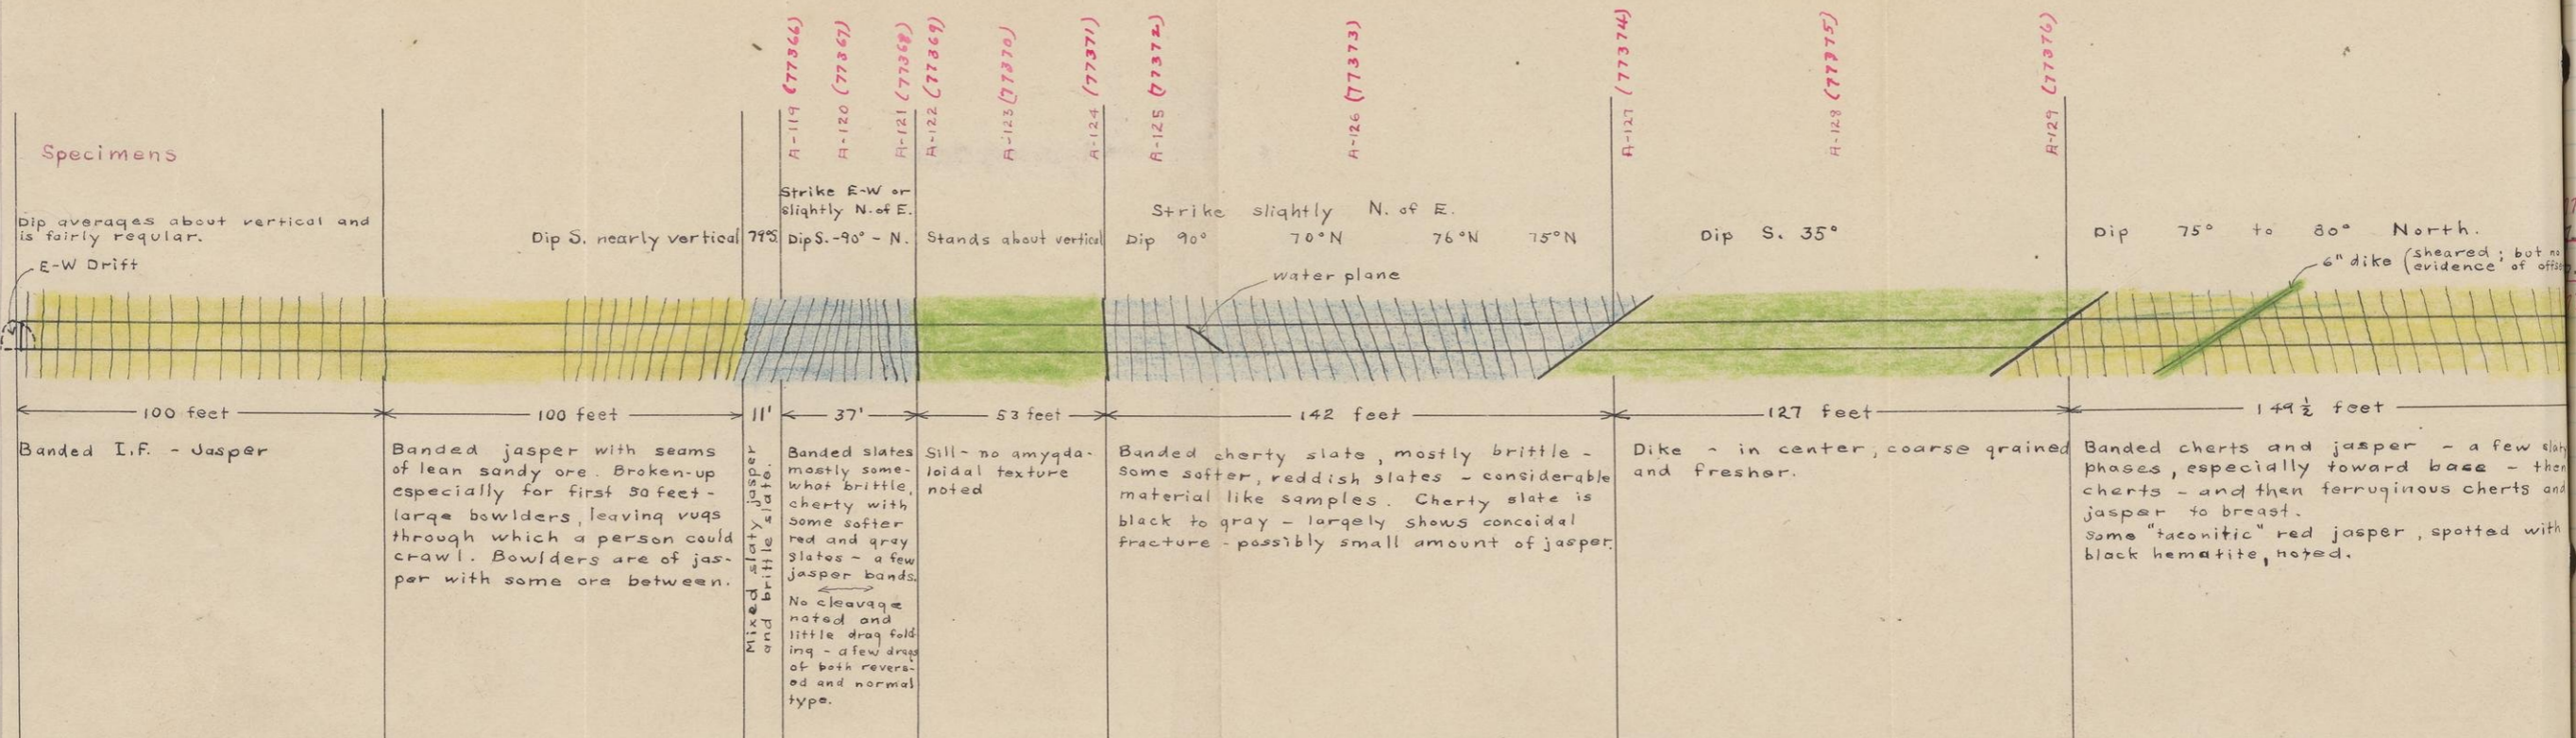 A-119 (77366)
A-120 (77367)
A-121 (77368)
A-122 (77369)
A-123 (77370)
A-124 (77371)
A-125 (77372)
A-126 (77373)
A-127 (77374)
A-128 (77375)
A-129 (77376)
Specimens
Dip averages about vertical and
is fairly regular.
E-W Drift
Dip S. nearly vertical
79°S.
Strike E-W or
slightly N. of E.
Dip S. - 90° - N.
Stands about vertical
Strike slightly N. of E.
Dip 90° 70°N 76°N 75°N
water plane
Dip S. 35°
Dip 75° to 80° North.
6" dike (sheared; but no
evidence of
100 feet
100 feet
11'
37'
53 feet
142 feet
127 feet
149½ feet
Banded I.F. - Jasper
Banded jasper with seams
of lean sandy ore. Broken-up
especially for first 50 feet -
large bowlders, leaving vugs
through which a person could
crawl. Bowlders are of jas-
per with some ore between.
Mixed slaty jasper
and brittle slate.
Banded slates
mostly some-
what brittle,
cherty with
some softer
red and gray
slates - a few
jasper bands.
No cleavage
noted and
little drag fold-
ing - a few drags
of both revers-
ed and normal
type.
Sill - no amygda-
loidal texture
noted
Banded cherty slate, mostly brittle -
some softer, reddish slates - considerable
material like samples. Cherty slate is
black to gray - largely shows concoidal
fracture - possibly small amount of jasper.
Dike - in center, coarse grained
and fresher.
Banded cherts and jasper - a few
phases, especially toward base - then
cherts - and then ferruginous cherts and
jasper to breast.
Some "taconitic" red jasper, spotted with
black hematite, noted.